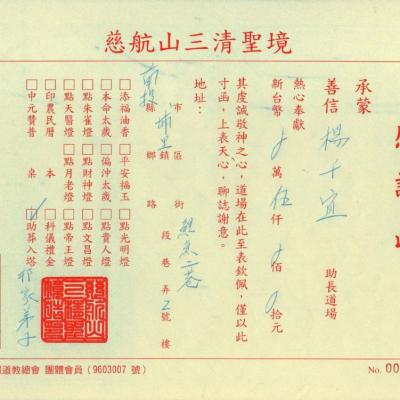 慈航山三清聖境
承蒙
善信 楊千宜 助長道場
熱心奉獻
新台幣 萬 伍仟 佰 拾元
其度誠敬神之心，道場在此至表欽佩，僅以此
寸函，上表天心，聊誌謝意。
地址：
南投 縣市 埔里 鄉鎮區 路街 段 二巷 弄 2號 樓
□添福油香 □平安福玉 □點光明燈
□本命太歲 □偏沖太歲 □點貴人燈
□點朱雀燈 □點財神燈 □點文昌燈
□點天醫燈 □點月老燈 □點帝王燈
□印農民曆 本 □科儀禮金
□中元贊普 桌 □助葬入塔
道教總會 團體會員（9603007 號）
No. 00